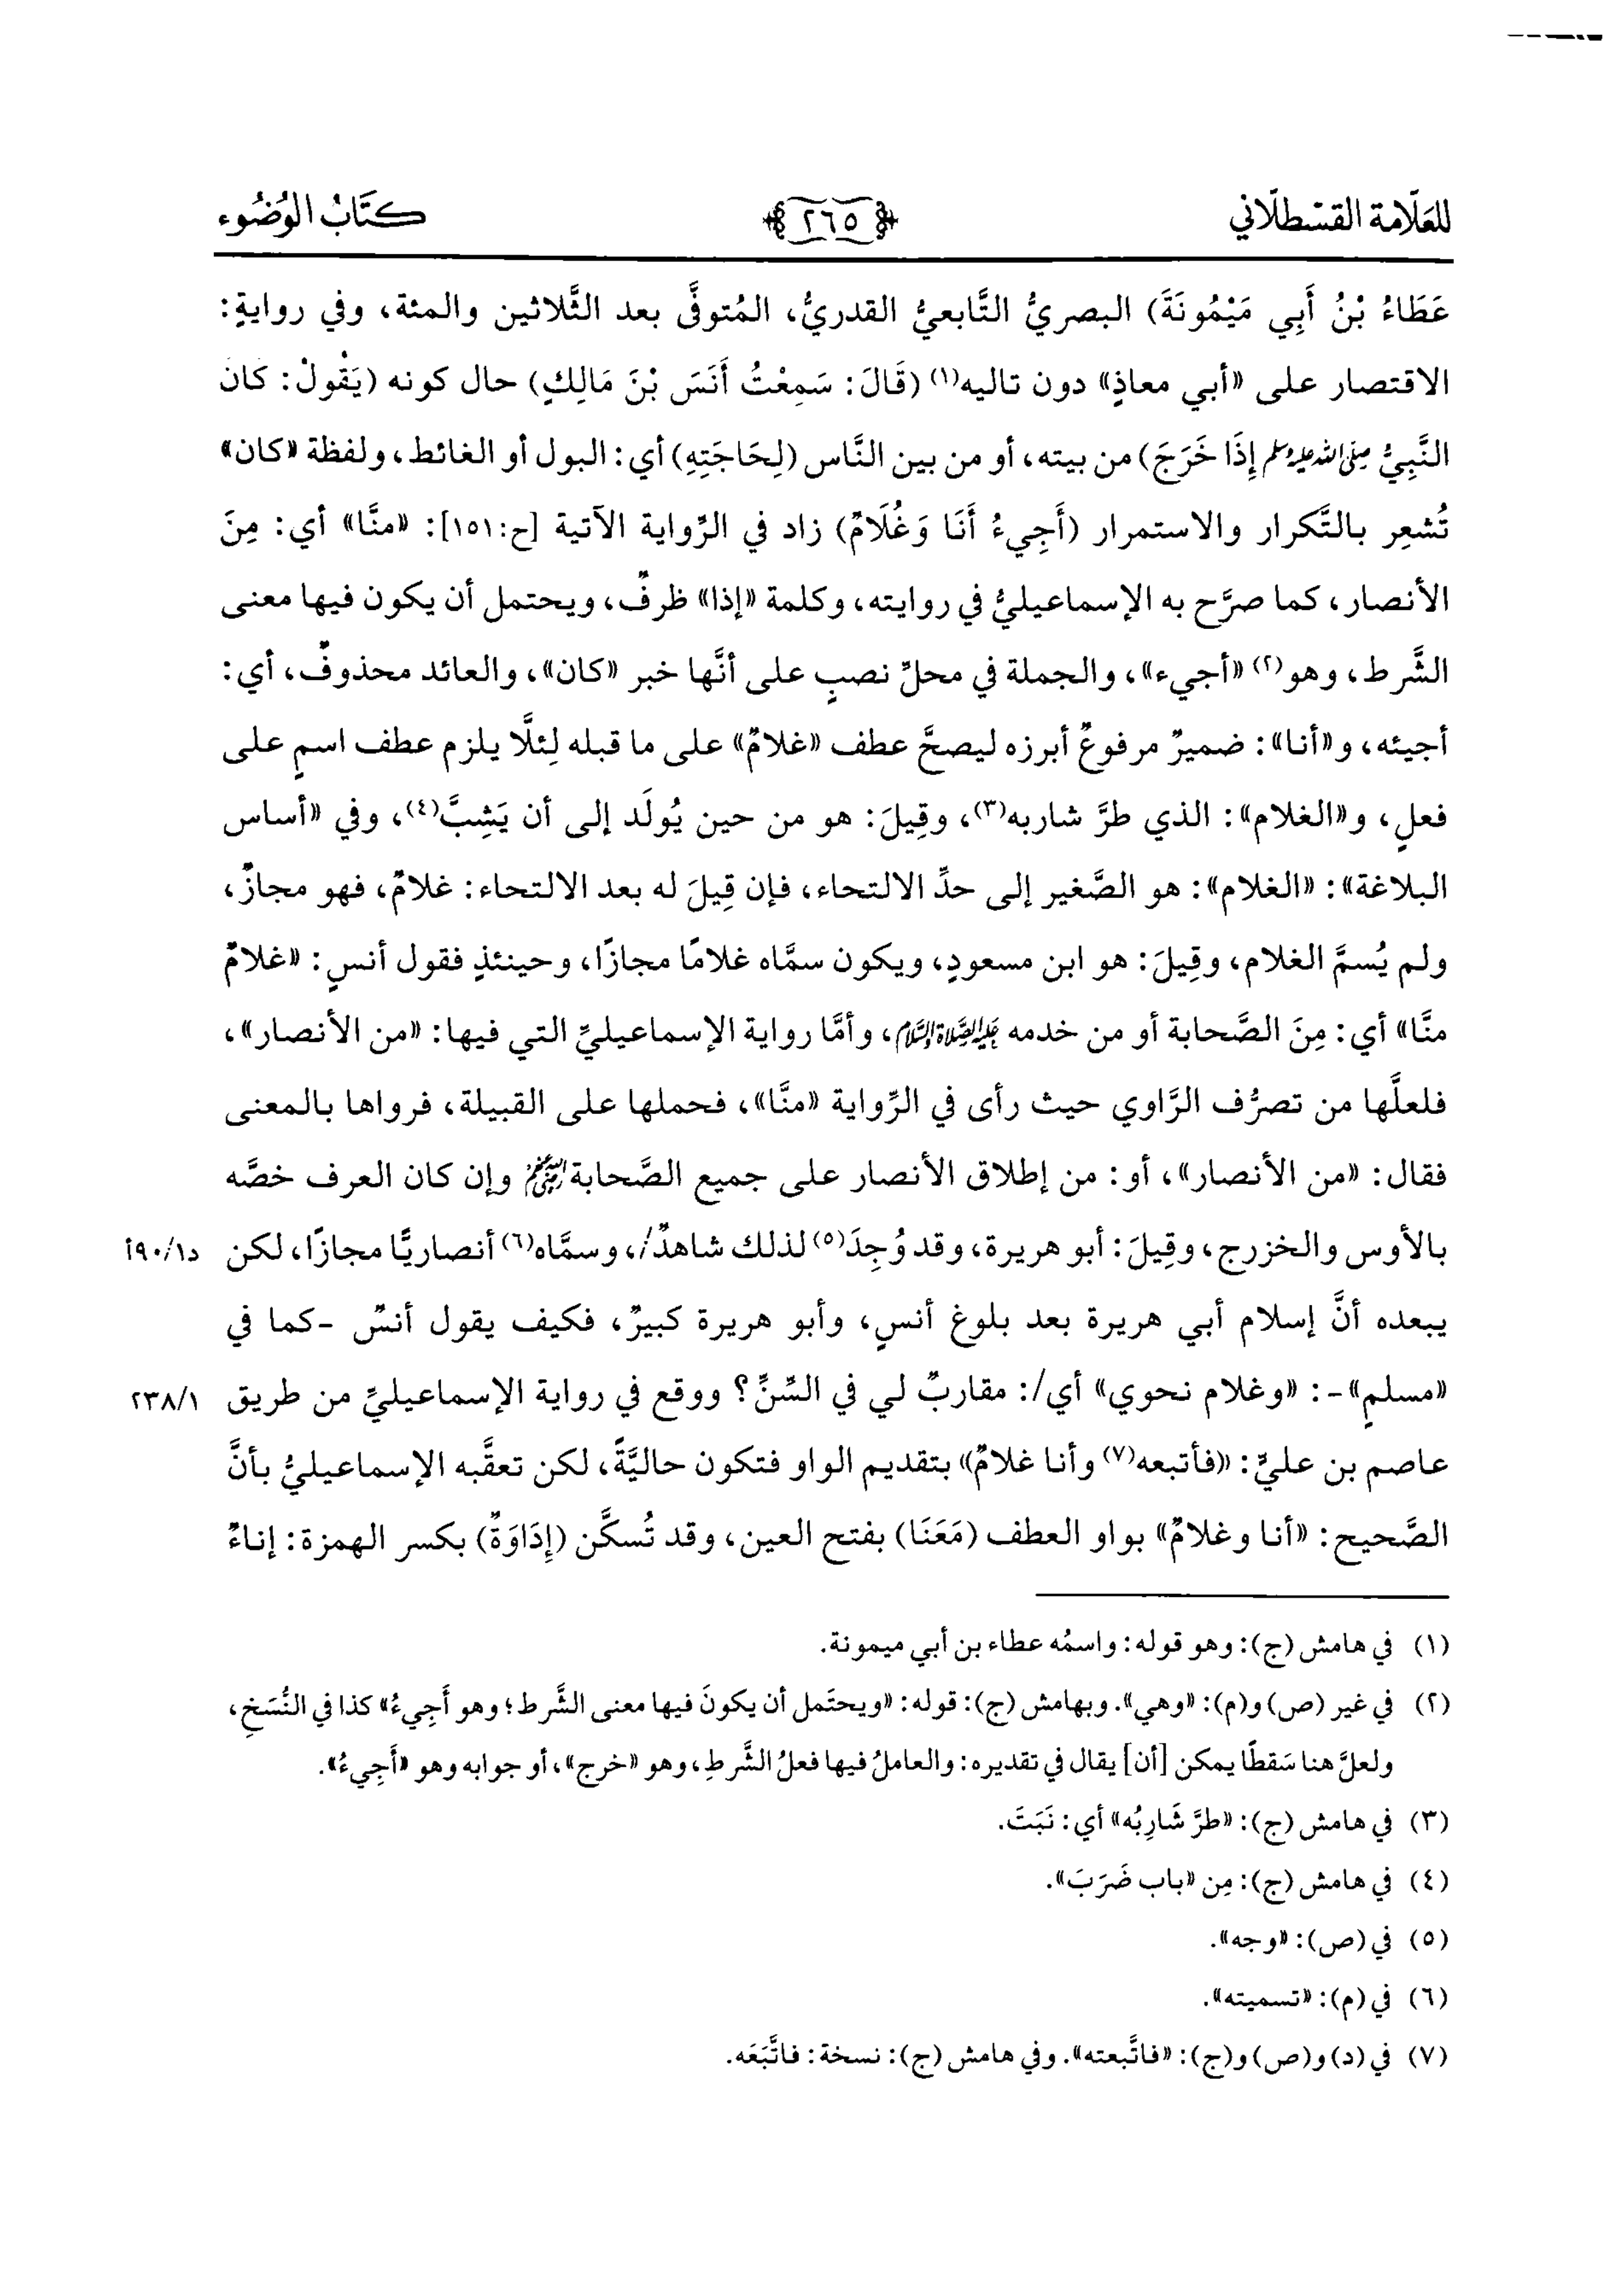 للعلامة القسطلاني ٢٦٥ كتاب الوضوء
عَطَاءُ بْنُ أَبِي مَيْمُونَةَ) البصريُّ التَّابعيُّ القدريُّ، المُتوفَّى بعد الثَّلاثين والمئة، وفي روايةٍ:
الاقتصار على «أبي معاذٍ» دون تاليه(١) (قَالَ: سَمِعْتُ أَنَسَ بْنَ مَالِكٍ) حال كونه (يَقُولُ: كَانَ
النَّبِيُّ صلى الله عليه وسلم إِذَا خَرَجَ) من بيته، أو من بين النَّاس (لِحَاجَتِهِ) أي: البول أو الغائط، ولفظة «كان»
تُشعِر بالتَّكرار والاستمرار (أَجِيءُ أَنَا وَغُلَامٌ) زاد في الرِّواية الآتية [ح:١٥١]: «منَّا» أي: مِنَ
الأنصار، كما صرَّح به الإسماعيليُّ في روايته، وكلمة «إذا» ظرفٌ، ويحتمل أن يكون فيها معنى
الشَّرط، وهو(٢) «أجيء»، والجملة في محلِّ نصبٍ على أنَّها خبر «كان»، والعائد محذوفٌ، أي:
أجيئه، و«أنا»: ضميرٌ مرفوعٌ أبرزه ليصحَّ عطف «غلامٌ» على ما قبله لِئلَّا يلزم عطف اسمٍ على
فعلٍ، و«الغلام»: الذي طرَّ شاربه(٣)، وقِيلَ: هو من حين يُولَد إلى أن يَشِبَّ(٤)، وفي «أساس
البلاغة»: «الغلام»: هو الصَّغير إلى حدِّ الالتحاء، فإن قِيلَ له بعد الالتحاء: غلامٌ، فهو مجازٌ،
ولم يُسمَّ الغلام، وقِيلَ: هو ابن مسعودٍ، ويكون سمَّاه غلامًا مجازًا، وحينئذٍ فقول أنسٍ: «غلامٌ
منَّا» أي: مِنَ الصَّحابة أو من خدمه عليه الصلاة والسلام، وأمَّا رواية الإسماعيليِّ التي فيها: «من الأنصار»،
فلعلَّها من تصرُّف الرَّاوي حيث رأى في الرِّواية «منَّا»، فحملها على القبيلة، فرواها بالمعنى
فقال: «من الأنصار»، أو: من إطلاق الأنصار على جميع الصَّحابة رضي الله عنهم وإن كان العرف خصَّه
بالأوس والخزرج، وقِيلَ: أبو هريرة، وقد وُجِدَ(٥) لذلك شاهدٌ/، وسمَّاه(٦) أنصاريًّا مجازًا، لكن د١/٩٠أ
يبعده أنَّ إسلام أبي هريرة بعد بلوغ أنسٍ، وأبو هريرة كبيرٌ، فكيف يقول أنسٌ -كما في
«مسلمٍ»-: «وغلام نحوي» أي/: مقاربٌ لي في السِّنِّ؟ ووقع في رواية الإسماعيليِّ من طريق ٢٣٨/١
عاصم بن عليٍّ: «فأتبعه(٧) وأنا غلامٌ» بتقديم الواو فتكون حاليَّةً، لكن تعقَّبه الإسماعيليُّ بأنَّ
الصَّحيح: «أنا وغلامٌ» بواو العطف (مَعَنَا) بفتح العين، وقد تُسكَّن (إِدَاوَةٌ) بكسر الهمزة: إناءٌ
(١) في هامش (ج): وهو قوله: واسمُه عطاء بن أبي ميمونة.
(٢) في غير (ص) و(م): «وهي». وبهامش (ج): قوله: «ويحتَمل أن يكونَ فيها معنى الشَّرط؛ وهو أَجِيءُ» كذا في النُّسَخِ،
ولعلَّ هنا سَقطًا يمكن [أن] يقال في تقديره: والعاملُ فيها فعلُ الشَّرطِ، وهو «خرج»، أو جوابه وهو «أَجِيءُ».
(٣) في هامش (ج): «طرَّ شَارِبُه» أي: نَبَتَ.
(٤) في هامش (ج): مِن «باب ضَرَبَ».
(٥) في (ص): «وجه».
(٦) في (م): «تسميته».
(٧) في (د) و(ص) و(ج): «فاتَّبعته». وفي هامش (ج): نسخة: فاتَّبَعَه.